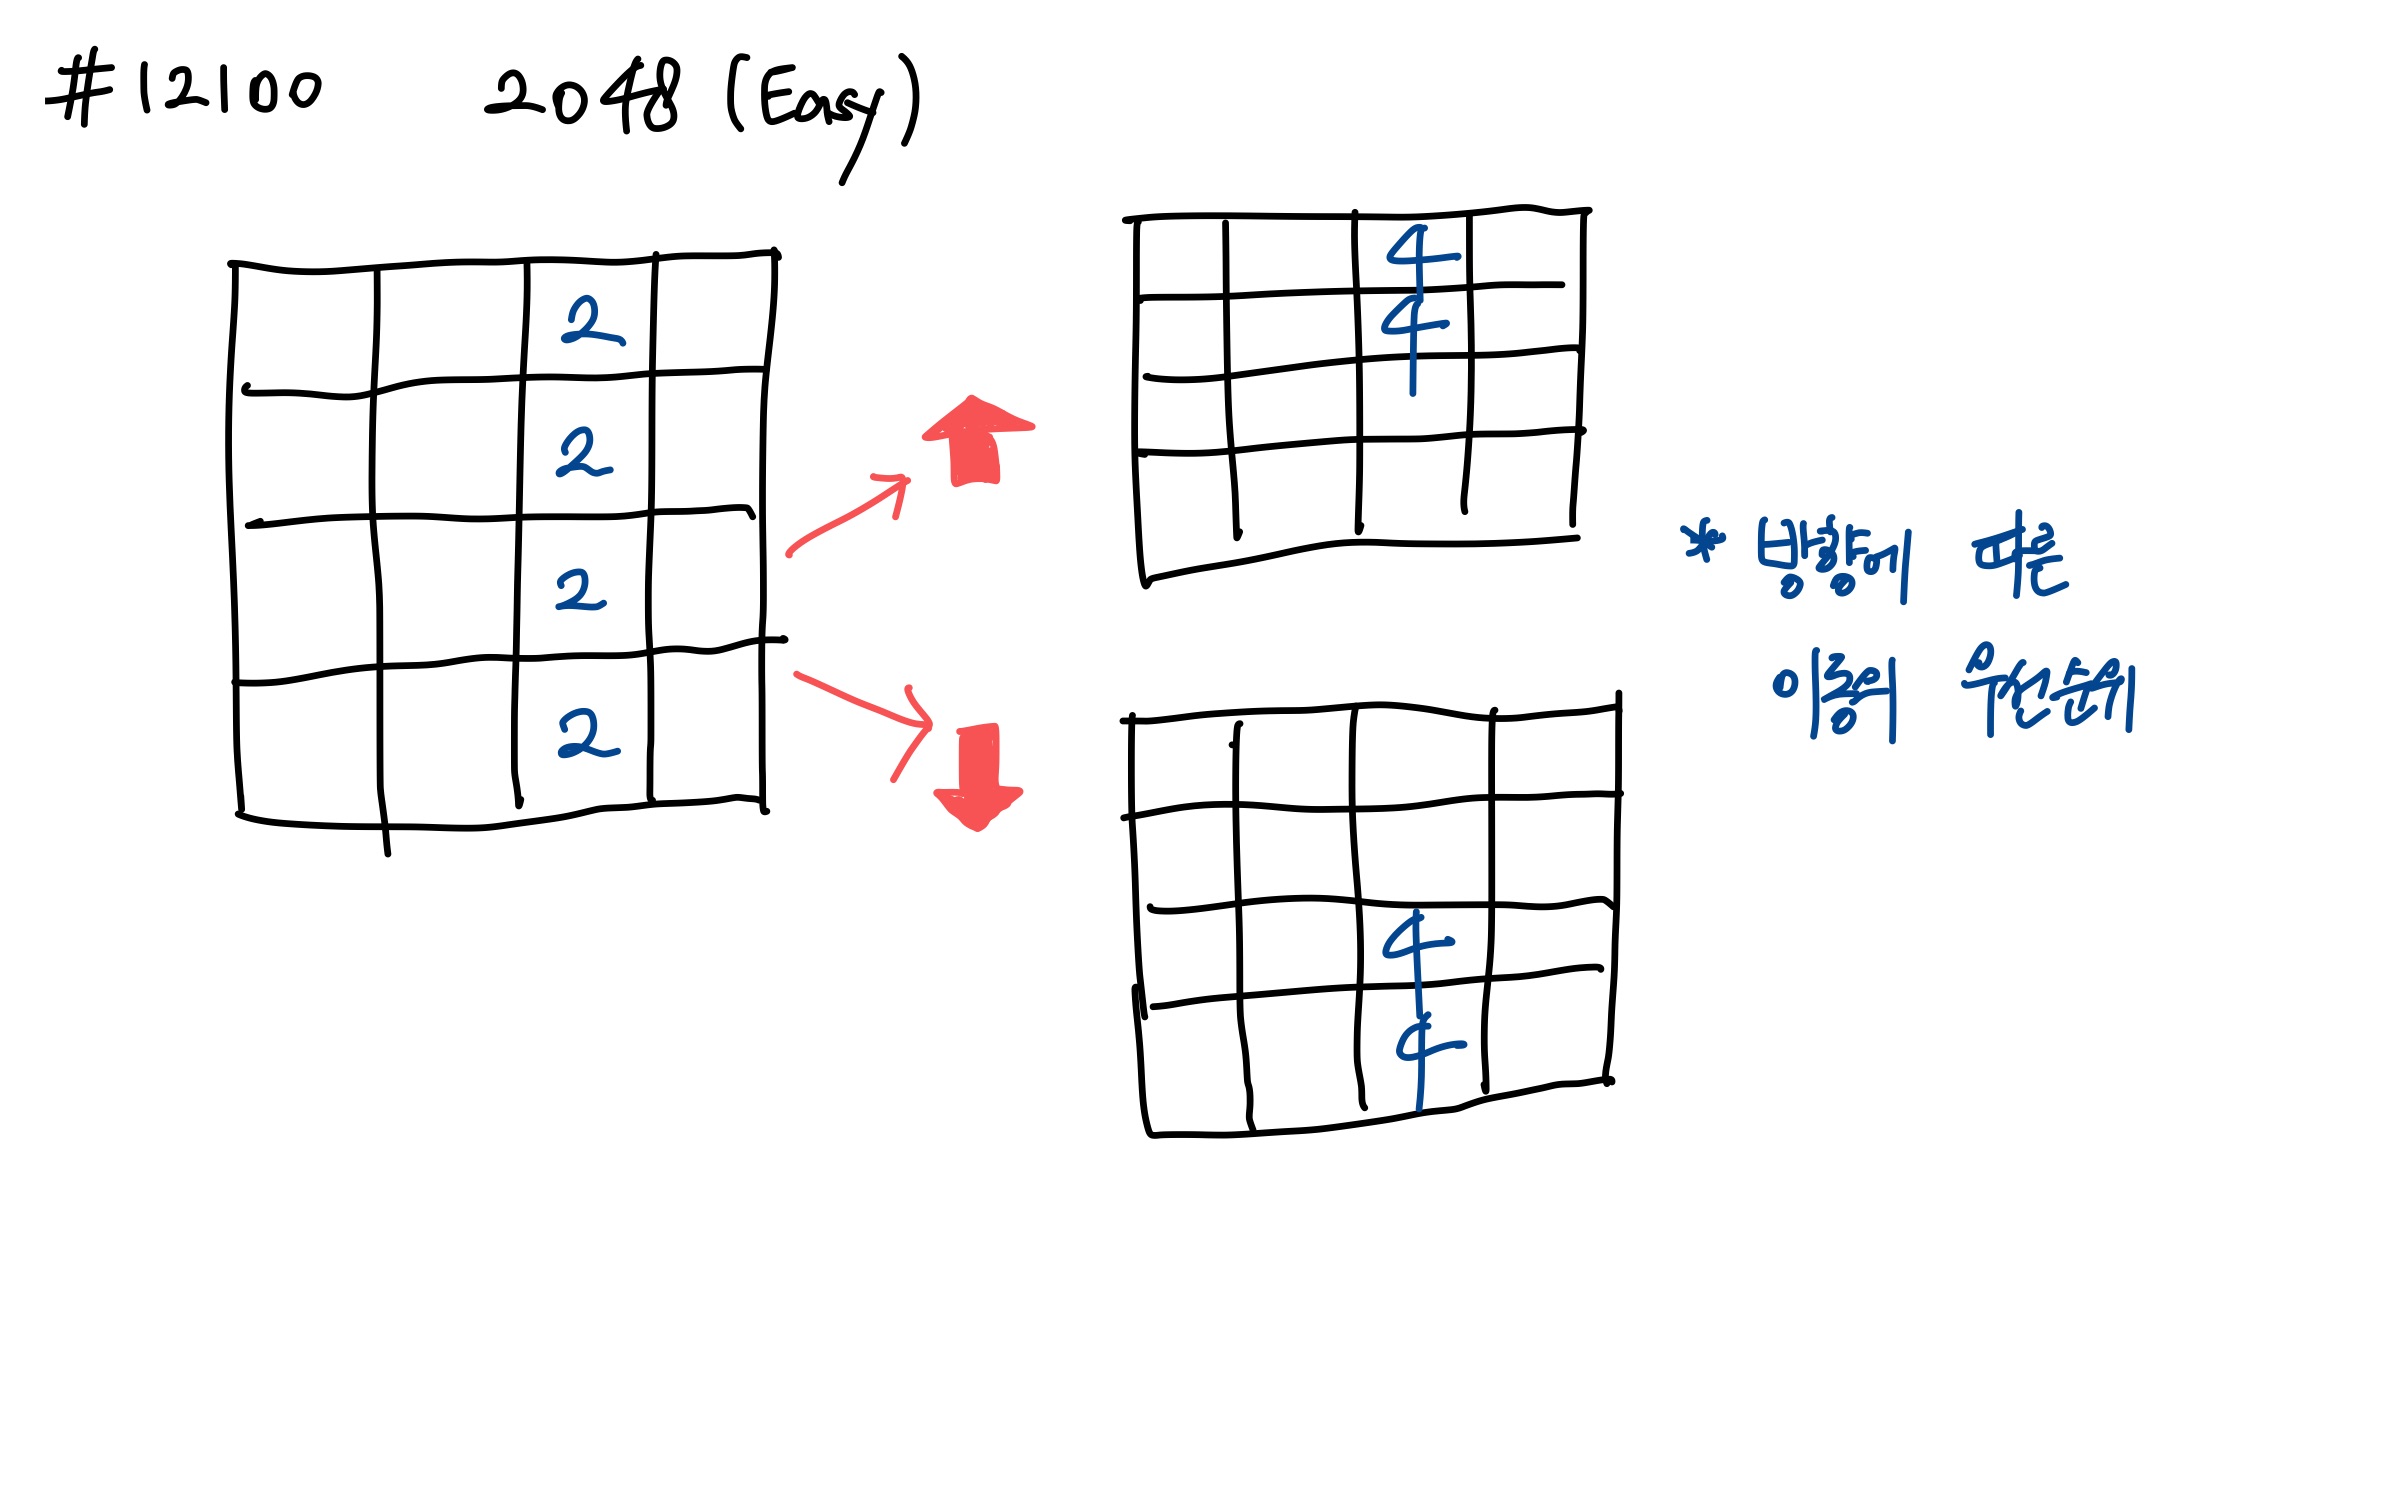 #12100 2048 (Easy)
2
2
2
2
4
4
4
4
* 방향에 따른
이동의 우선순위